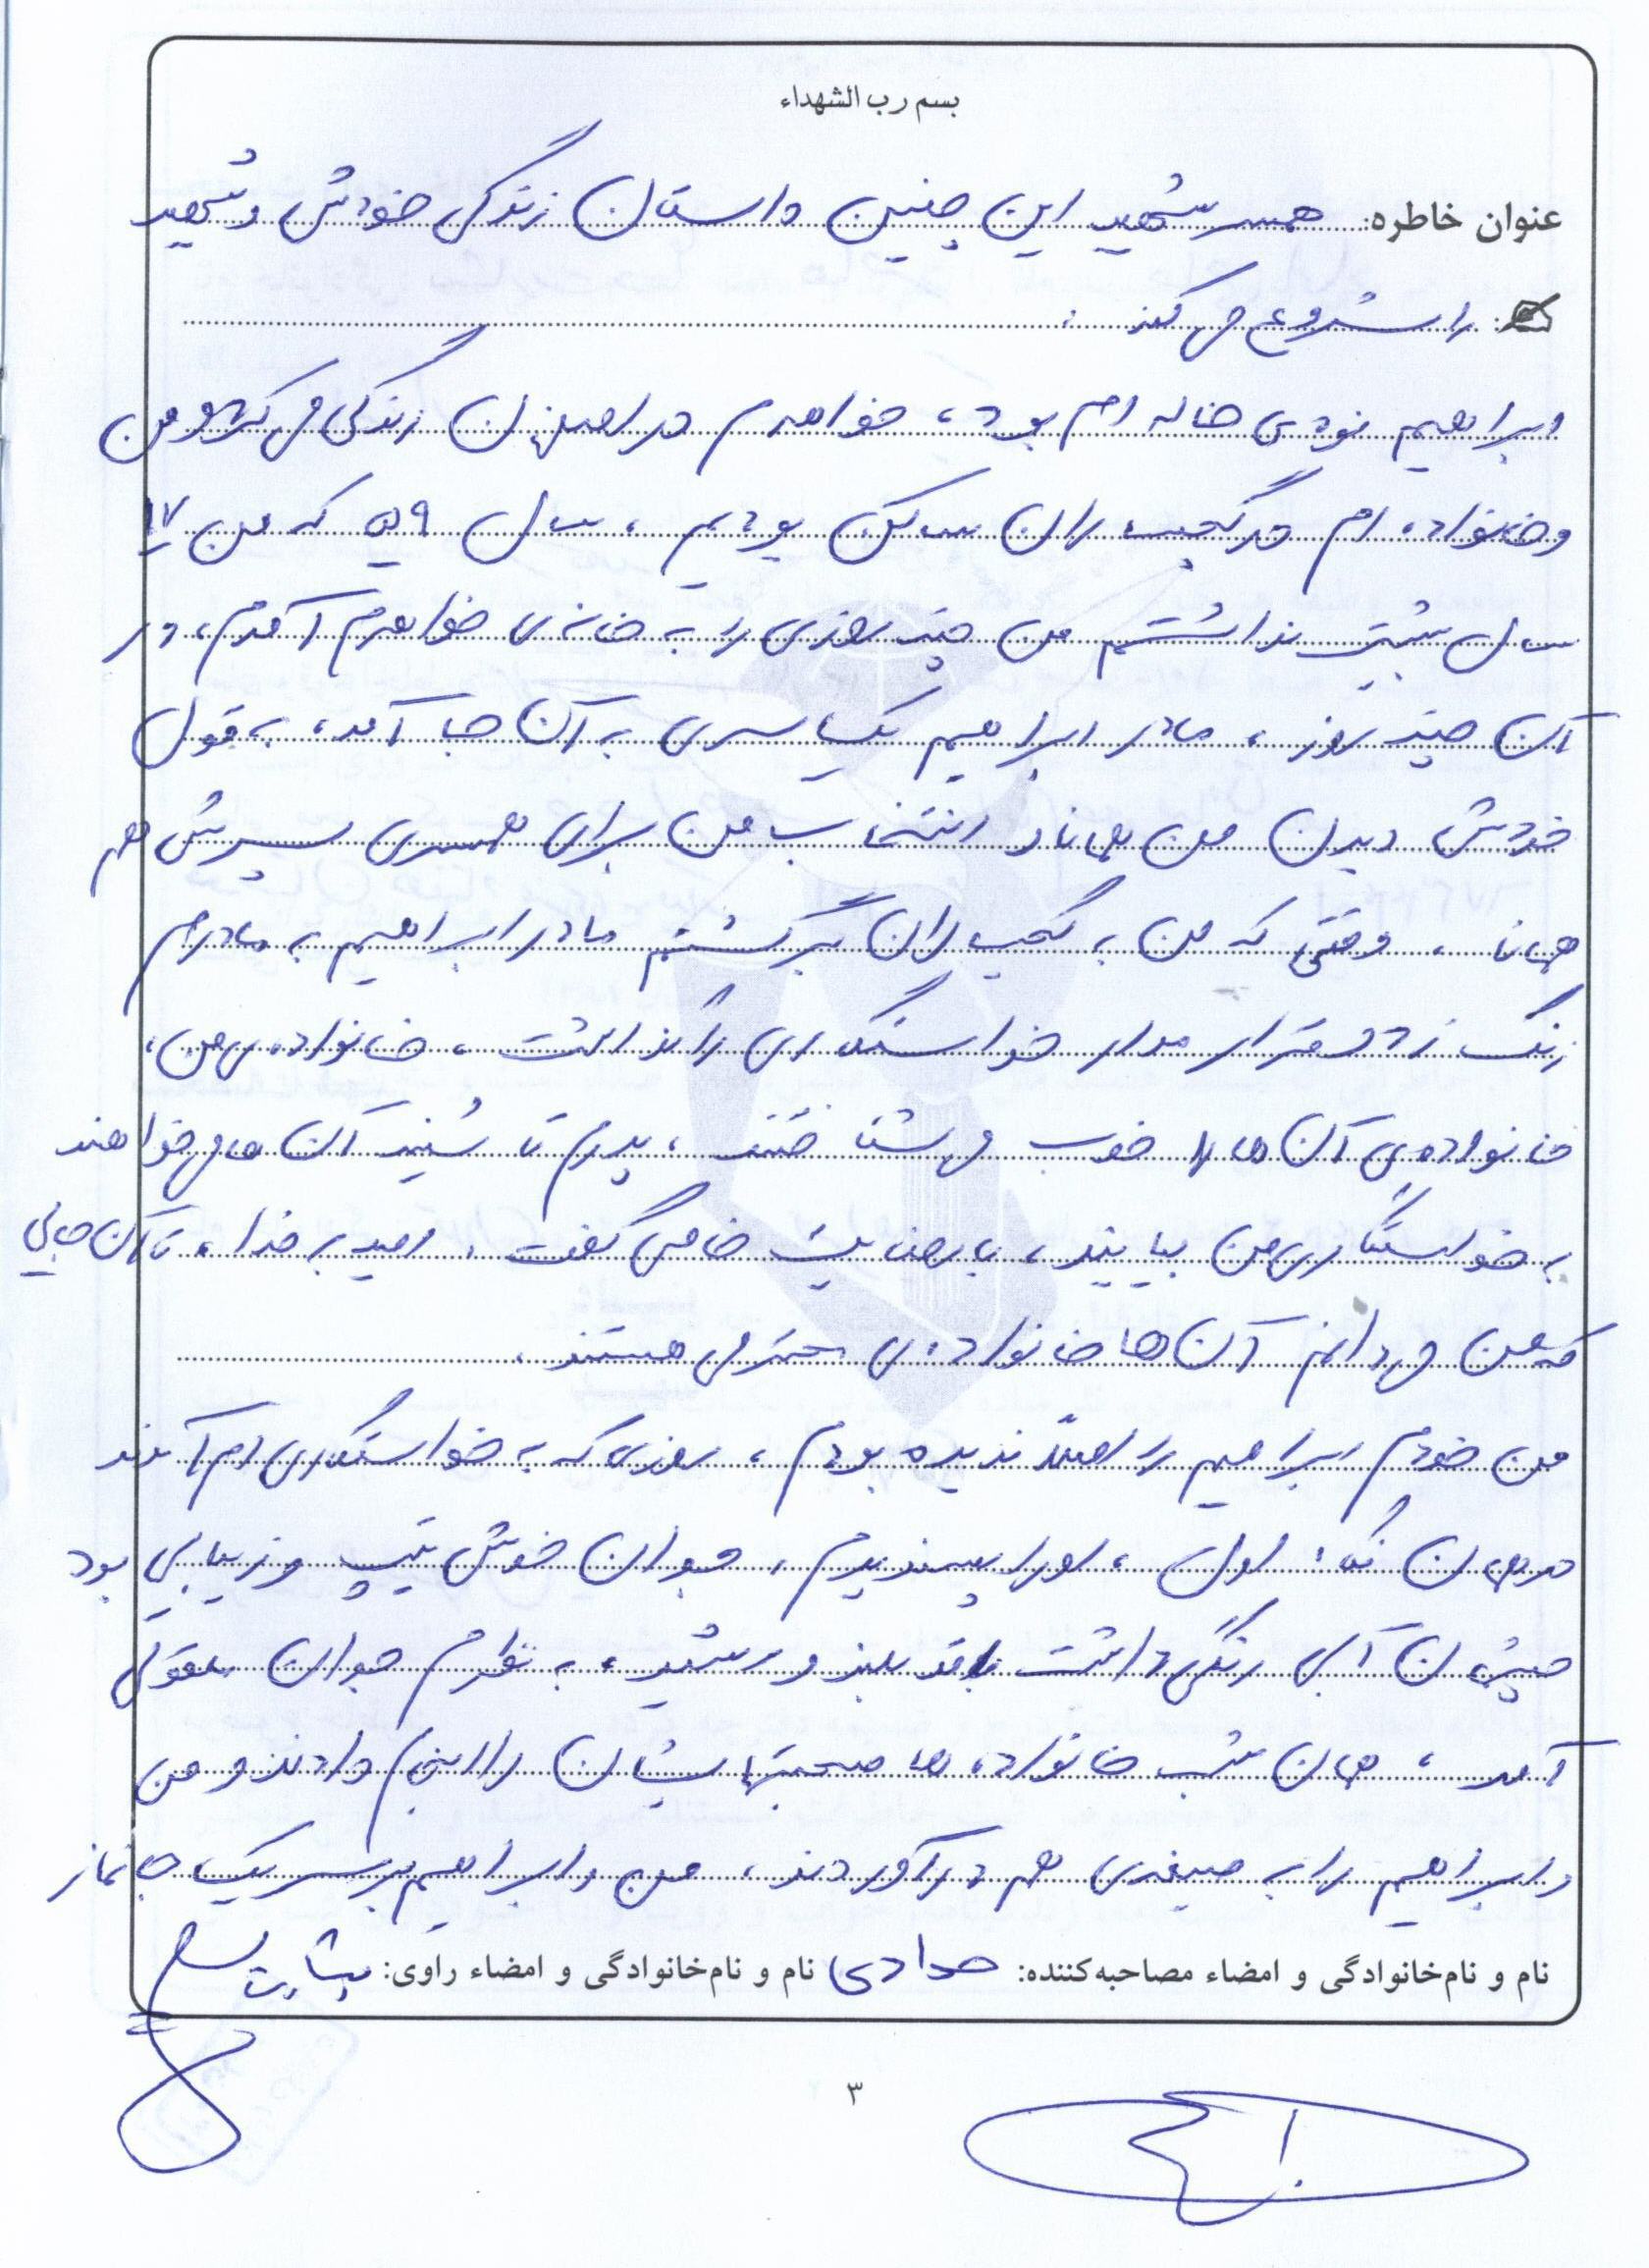 بسم رب الشهداء
عنوان خاطره: همسر شهید این چنین داستان زندگی خودش و شهید
را شروع می کند :
ابراهیم نوه ی خاله ام بود، خواهرم در اصفهان زندگی می کرد و من
و خانواده ام در گچساران ساکن بودیم، سال ۵۹ که من ۱۷
سال بیشتر نداشتم من چند روزی را به خانه ی خواهرم آمدم، در
آن چند روز، مادر ابراهیم یک سری به آن جا آمد، به قول
خودش دیدن من همانا و انتخاب من برای همسری پسرش هم
همانا، وقتی که من به گچساران برگشتم مادر ابراهیم به مادرم
زنگ زد و قرار مدار خواستگاری را گذاشت، خانواده ی من،
خانواده ی آن ها را خوب می شناختند، پدرم تا شنید آن ها می خواهند
به خواستگاری من بیایند، با رضایت خاصی گفت: امید به خدا، تا آن جایی
که من می دانم آن ها خانواده ی محترمی هستند.
من خودم ابراهیم را اصلاً ندیده بودم، روزی که به خواستگاری ام آمدند
در همان نگاه اول، او را پسندیدم، جوان خوش تیپ و زیبایی بود
چشمان آبی رنگی داشت با قد بلند و رشید، به نظرم جوان معقولی
آمد، همان شب خانواده ها صحبتهایشان را انجام دادند و من
و ابراهیم را به صیغه ی هم درآوردند، من و ابراهیم بر سر یک جانماز
نام و نام‌خانوادگی و امضاء مصاحبه‌کننده: حدادی نام و نام‌خانوادگی و امضاء راوی: بشارت
۳